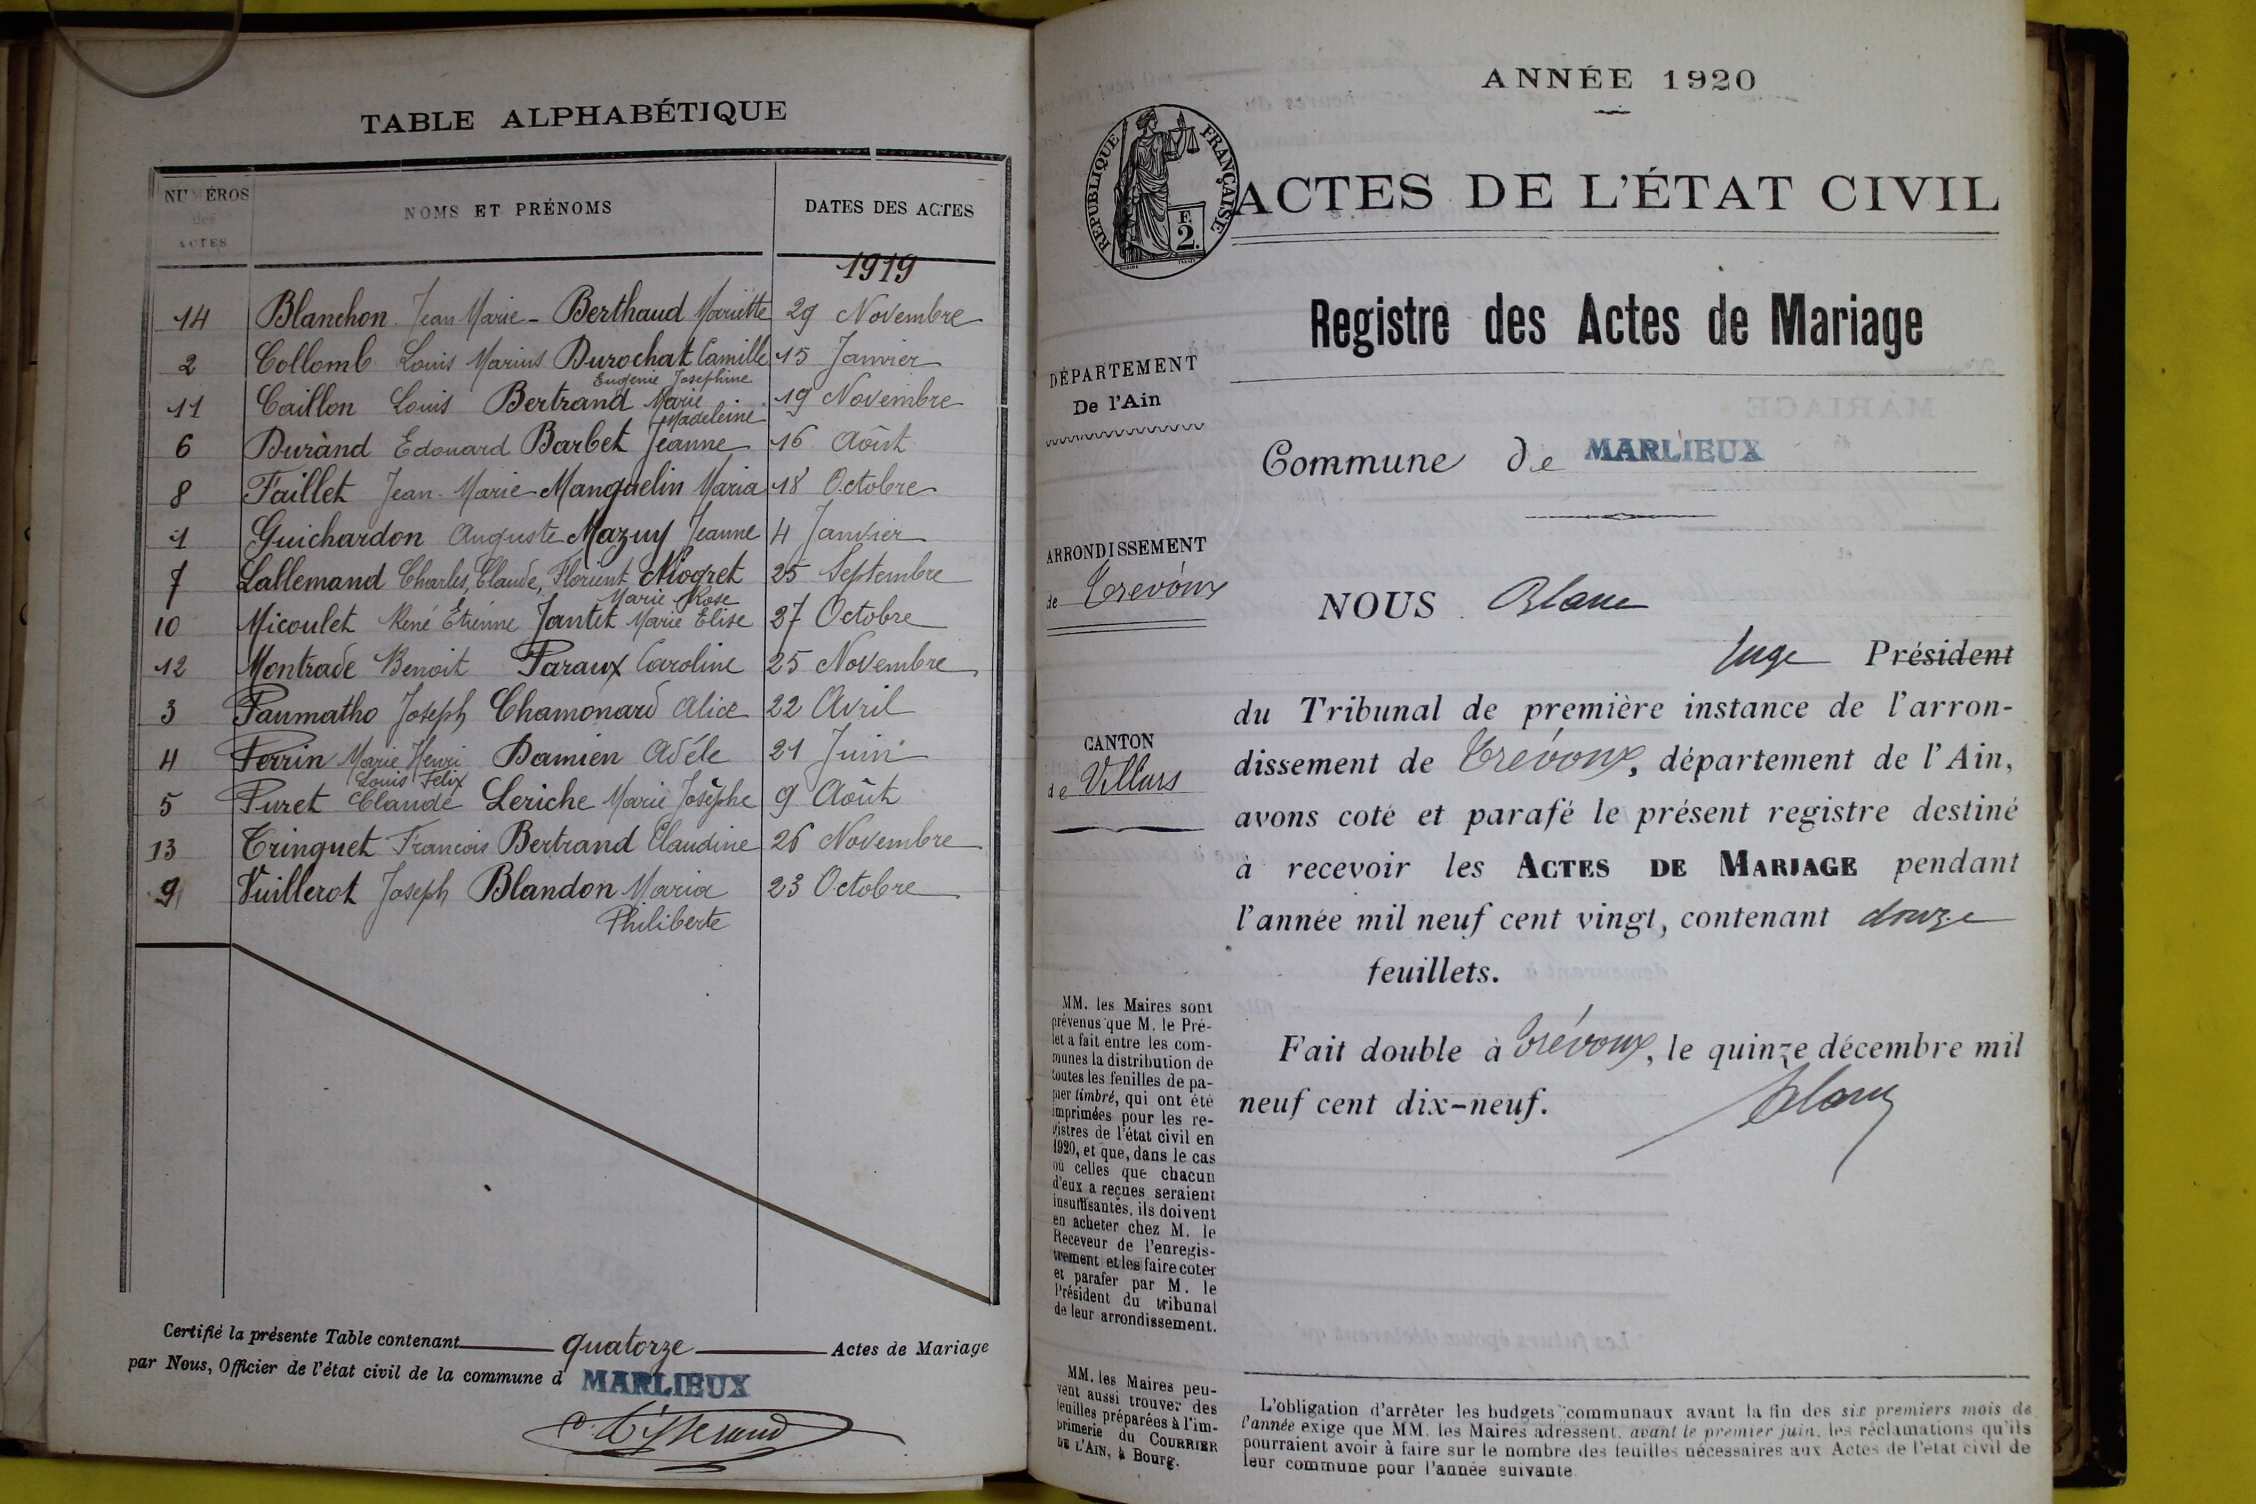 TABLE ALPHABÉTIQUE
NUMÉROS des ACTES
NOMS ET PRÉNOMS
DATES DES ACTES
1919
14 Blanchon Jean Marie - Berthaud Mariette 29 Novembre
2 Collomb Louis Marius Durochat Camille 15 Janvier
Eugenie Josephine
11 Caillon Louis Bertrand Marie 19 Novembre
Madeleine
6 Durand Edouard Barbet Jeanne 16 Août
8 Faillet Jean-Marie Manguelin Maria 18 Octobre
1 Guichardon Auguste Mazuy Jeanne 4 Janvier
7 Lallemand Charles, Claude, Florient Niogret 25 Septembre
Marie Rose
10 Micoulet René Etienne Jantet Marie Elise 27 Octobre
12 Montrade Benoit Paraux Caroline 25 Novembre
3 Paumatho Joseph Chamonard Alice 22 Avril
4 Perrin Marie Henri Damien Adéle 21 Juin
Louis Felix
5 Puret Claude Leriche Marie Josèphe 9 Août
13 Tringuet Francois Bertrand Claudine 26 Novembre
9 Vuillerot Joseph Blandon Maria 23 Octobre
Philiberte
Certifié la présente Table contenant quatorze Actes de Mariage
par Nous, Officier de l'état civil de la commune d MARLIEUX
ANNÉE 1920
RÉPUBLIQUE FRANÇAISE
F.
2.
ACTES DE L'ÉTAT CIVIL
Registre des Actes de Mariage
DÉPARTEMENT
De l'Ain
Commune de MARLIEUX
ARRONDISSEMENT
de Trevoux
NOUS Blanc
Juge Président
du Tribunal de première instance de l'arron-
dissement de Trévoux, département de l'Ain,
CANTON
de Villars
avons coté et parafé le présent registre destiné
à recevoir les ACTES DE MARIAGE pendant
l'année mil neuf cent vingt, contenant douze
feuillets.
Fait double à Trévoux, le quinze décembre mil
neuf cent dix-neuf.
Blanc
MM. les Maires sont
prévenus que M. le Pré-
fet a fait entre les com-
munes la distribution de
toutes les feuilles de pa-
pier timbré, qui ont été
imprimées pour les re-
gistres de l'état civil en
1920, et que, dans le cas
où celles que chacun
d'eux a reçues seraient
insuffisantes, ils doivent
en acheter chez M. le
Receveur de l'enregis-
trement et les faire coter
et parafer par M. le
Président du tribunal
de leur arrondissement.
MM. les Maires peu-
vent aussi trouver des
feuilles préparées à l'im-
primerie du COURRIER
DE L'AIN, à Bourg.
L'obligation d'arrêter les budgets communaux avant la fin des six premiers mois de
l'année exige que MM. les Maires adressent, avant le premier juin, les réclamations qu'ils
pourraient avoir à faire sur le nombre des feuilles nécessaires aux Actes de l'état civil de
leur commune pour l'année suivante.